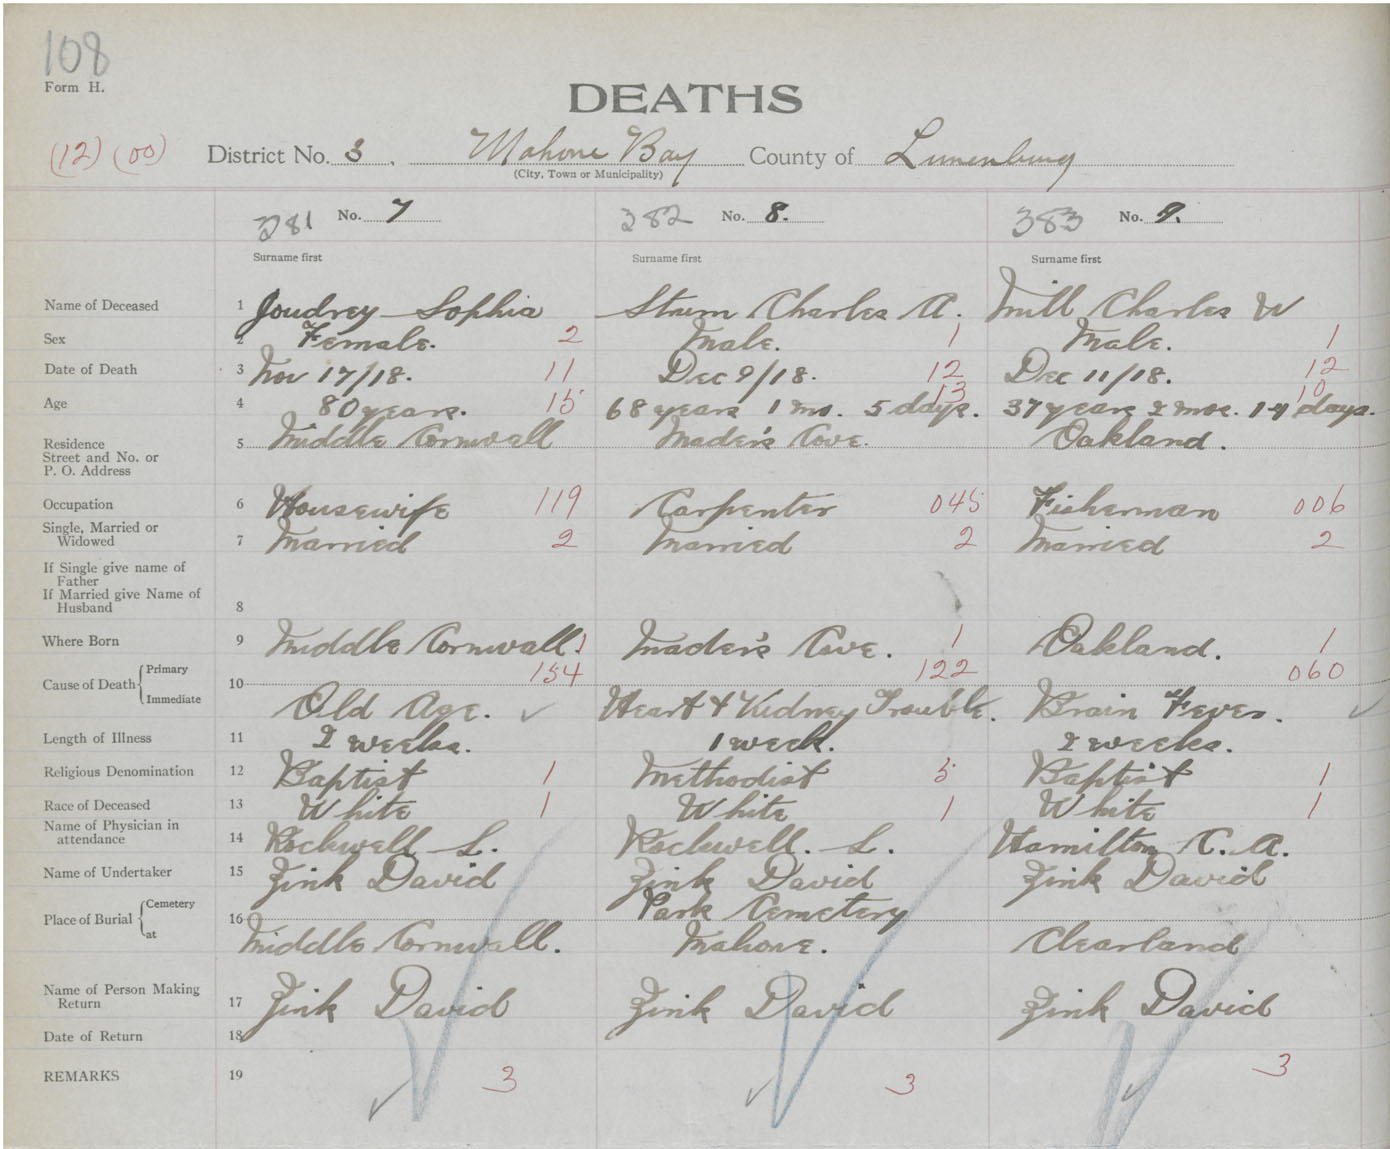 108
Form H.
DEATHS
(12) (00) District No. 3, Mahone Bay County of Lunenburg
(City, Town or Municipality)
281 No. 7 282 No. 8. 383 No. 9.
Surname first Surname first Surname first
Name of Deceased 1 Joudrey Sophia Strum Charles A. Mill Charles W
Sex 2 Female. 2 Male. 1 Male. 1
Date of Death 3 Nov 17/18. 11 Dec 9/18. 12 Dec 11/18. 12
Age 4 80 years. 15 68 years 1 mo. 5 days. 13 37 years 2 mos. 14 days. 10
Residence
Street and No. or
P. O. Address 5 Middle Cornwall Mader's Cove. Oakland.
Occupation 6 Housewife 119 Carpenter 045 Fisherman 006
Single, Married or
Widowed 7 Married 2 Married 2 Married 2
If Single give name of
Father
If Married give Name of
Husband 8
Where Born 9 Middle Cornwall. 1 Mader's Cove. 1 Oakland. 1
Cause of Death Primary 10 154 122 060
Immediate Old Age. Heart & Kidney Trouble. Brain Fever.
Length of Illness 11 2 weeks. 1 week. 2 weeks.
Religious Denomination 12 Baptist 1 Methodist 5 Baptist 1
Race of Deceased 13 White 1 White 1 White 1
Name of Physician in
attendance 14 Rockwell L. Rockwell. L. Hamilton C. A.
Name of Undertaker 15 Zink David Zink David Zink David
Place of Burial Cemetery 16 Park Cemetery
at Middle Cornwall. Mahone. Clearland
Name of Person Making
Return 17 Zink David Zink David Zink David
Date of Return 18
REMARKS 19 3 3 3